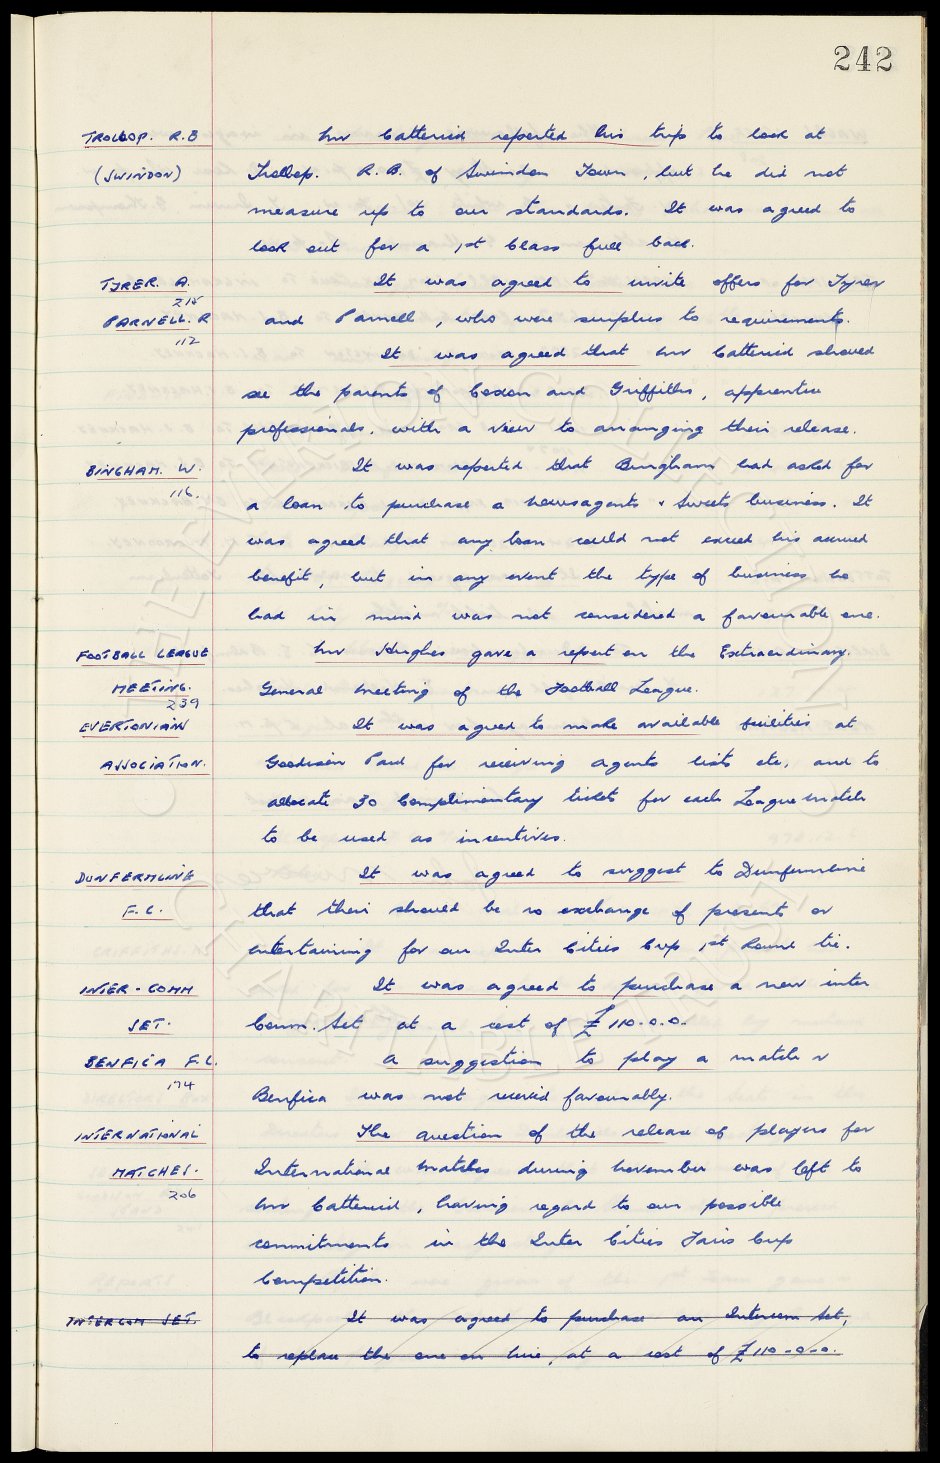 242
TROLLOP. R.B Mr Catterick reported his trip to look at
(SWINDON) Trollop. R.B. of Swindon Town, but he did not
measure up to our standards. It was agreed to
look out for a 1st Class full back.
TYRER. A. It was agreed to invite offers for Tyrer
215
PARNELL. R and Parnell, who were surplus to requirements.
112
It was agreed that Mr Catterick should
see the parents of Coxon and Griffiths, apprentice
professionals, with a view to arranging their release.
BINGHAM. W. It was reported that Bingham had asked for
116.
a loan to purchase a newsagents & Sweets business. It
was agreed that any loan could not exceed his accrued
benefit, but in any event the type of business he
had in mind was not considered a favourable one.
FOOTBALL LEAGUE Mr Hughes gave a report on the Extraordinary
MEETING. General Meeting of the Football League.
239
EVERTONIAN It was agreed to make available facilities at
ASSOCIATION. Goodison Park for receiving agents lists etc, and to
allocate 30 Complimentary tickets for each League match
to be used as incentives.
DUNFERMLINE It was agreed to suggest to Dunfermline
F.C. that their should be no exchange of presents or
entertaining for our Inter Cities Cup 1st Round tie.
INTER-COMM It was agreed to purchase a new inter
SET. Comm. Set at a cost of £110.0.0.
BENFICA F.C. A suggestion to play a match v
174
Benfica was not received favourably.
INTERNATIONAL The question of the release of players for
MATCHES. International Matches during November was left to
206
Mr Catterick, having regard to our possible
commitments in the Inter Cities Fairs Cup
Competition.
INTERCOM SET. It was agreed to purchase an Intercom Set,
to replace the one on hire, at a cost of £110-0-0.